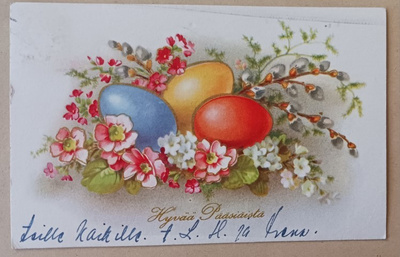 Hyvää Pääsiäistä
Teille Kaikille. T. L. H. ja